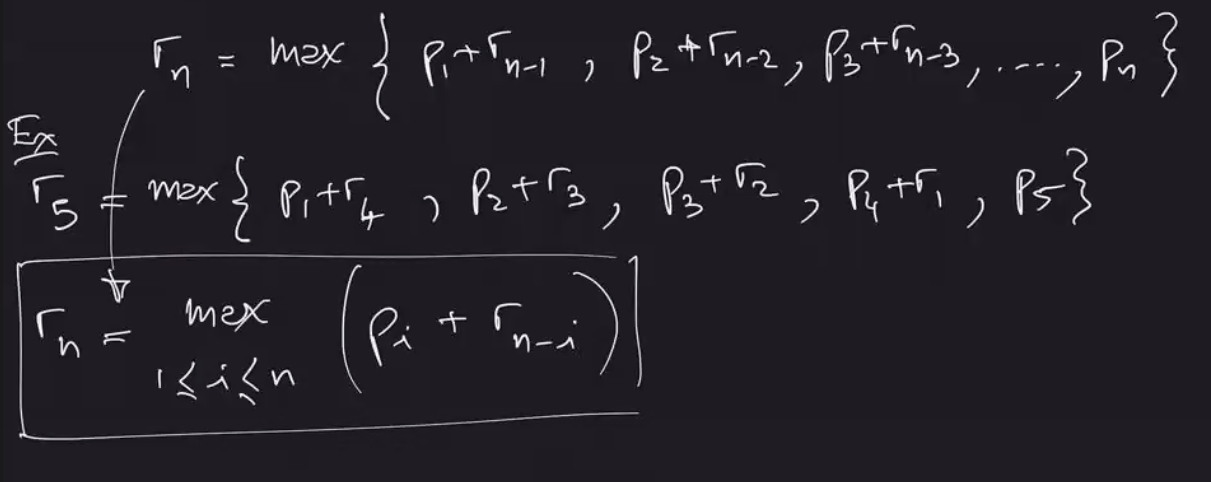 r_n = max { p_1 + r_{n-1} , p_2 + r_{n-2} , p_3 + r_{n-3} , ..... , p_n }
Ex
r_5 = max { p_1 + r_4 , p_2 + r_3 , p_3 + r_2 , p_4 + r_1 , p_5 }
r_n = max ( p_i + r_{n-i} )
1 ≤ i ≤ n